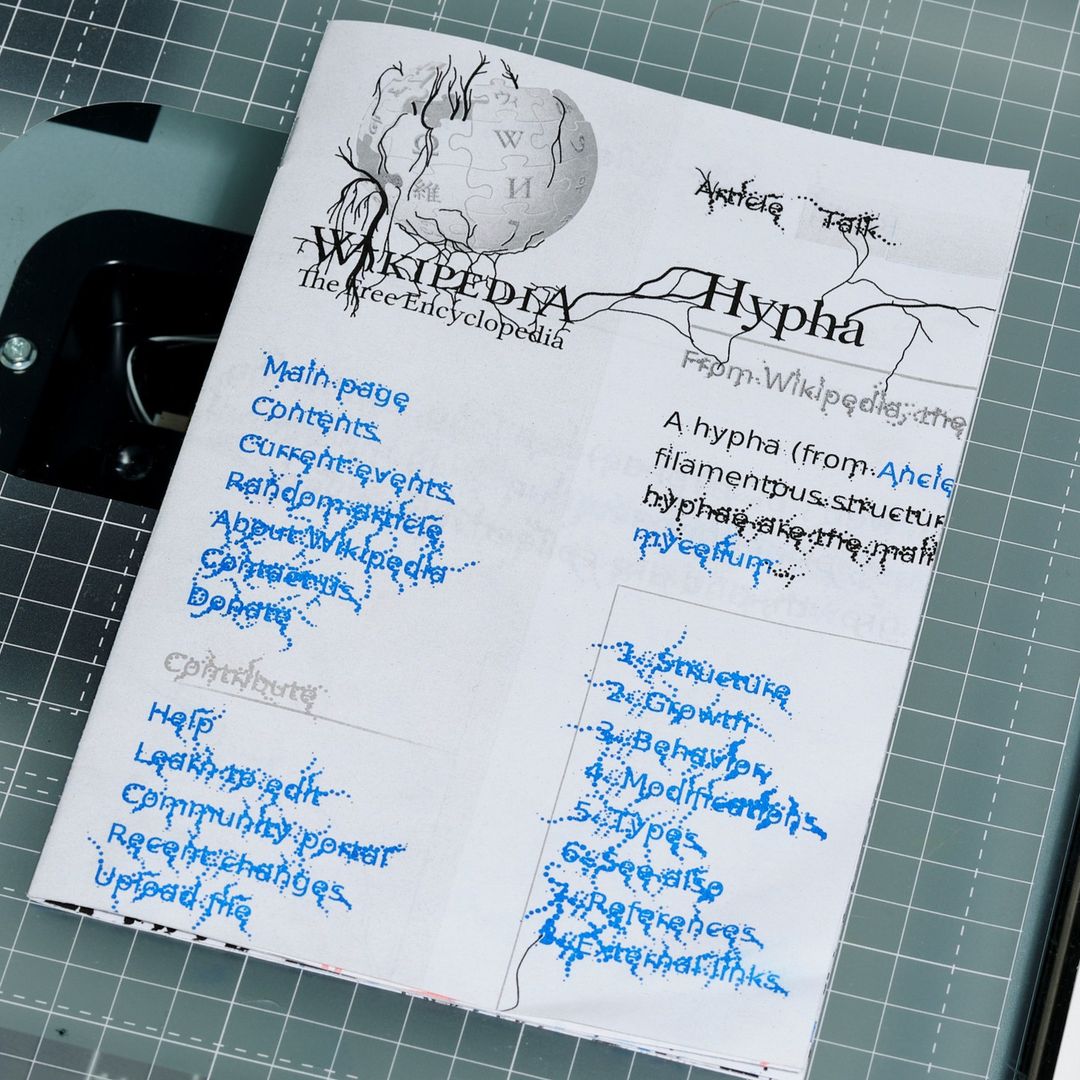 Ω
W
ウィ
維
И
WIKIPEDIA
The Free Encyclopedia
Main page
Contents
Current events
Random article
About Wikipedia
Contact us
Donate
Contribute
Help
Learn to edit
Community portal
Recent changes
Upload file
Article Talk
Hypha
From Wikipedia, the
A hypha (from Ancie
filamentous structur
hyphae are the main
mycelium
1. Structure
2. Growth
3. Behavior
4. Modifications
5. Types
6. See also
7. References
8. External links